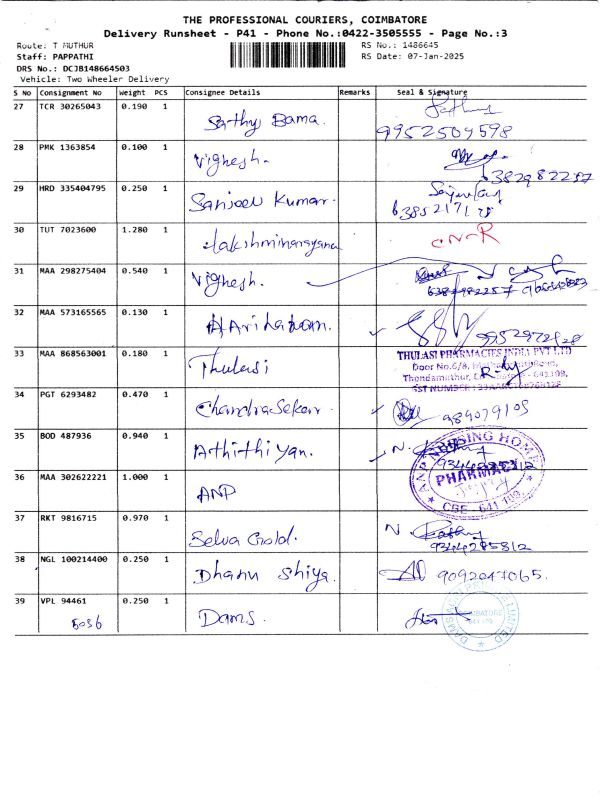 THE PROFESSIONAL COURIERS, COIMBATORE
Delivery Runsheet - P41 - Phone No.:0422-3505555 - Page No.:3
Route: T MUTHUR RS No.: 1486645
Staff: PAPPATHI RS Date: 07-Jan-2025
DRS No.: DCJB148664503
Vehicle: Two Wheeler Delivery
S No Consignment No Weight PCS Consignee Details Remarks Seal & Signature
27 TCR 30265043 0.190 1 Sathy Bama.
9952509598
28 PMK 1363854 0.100 1 Vighesh.
6382982257
29 HRD 335404795 0.250 1 Sanjeev Kumar.
30 TUT 7023600 1.280 1 Lakshminarayana C.N-R
31 MAA 298275404 0.540 1 Vighesh.
32 MAA 573165565 0.130 1
33 MAA 868563001 0.180 1 Thulasi
THULASI PHARMACIES INDIA PVT LTD
Door No.6/8,
Thondamuthur, - 641 109.
GST NUMBER
34 PGT 6293482 0.470 1 Chandra Sekar
35 BOD 487936 0.940 1 Athithiyan. N.
36 MAA 302622221 1.000 1 ANP
ANP NURSING HOME
PHARMACY
CBE - 641 109
37 RKT 9816715 0.970 1 Selva Gold. N
9344285812
38 NGL 100214400 0.250 1 Dhanu Shiya. 9092047065.
39 VPL 94461 0.250 1 Dams.
5036
COIMBATORE
LIMITED